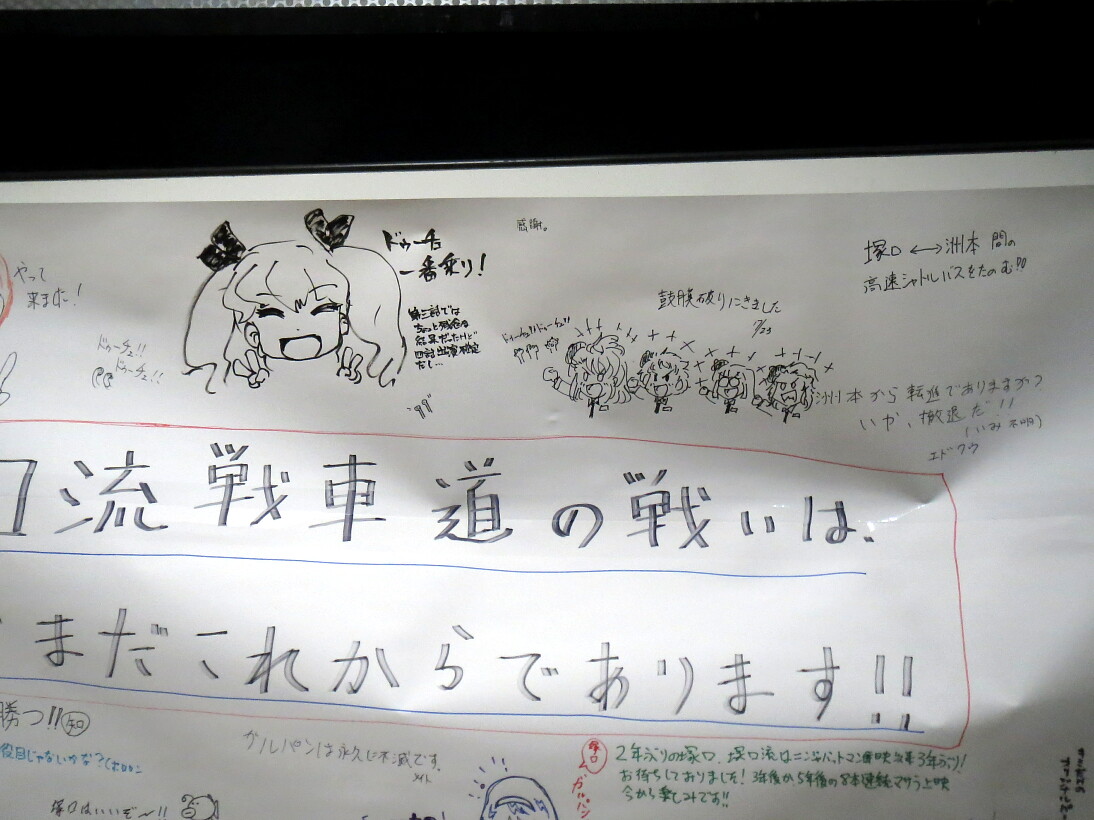 やって
来ました!
ドゥーチェ
一番乗り!
感謝。
塚口 ←→ 洲本 間の
高速シャトルバスをたのむ!!
第三話では
ちょっと残念な
結果だったけど
四話出演確定
だし…
鼓膜破りにきました
7/23
ドゥーチェ!!ドゥーチェ!!
ドゥーチェ!!
ドゥーチェ!!
洲本から転進でありますか?
いや、撤退だ!!
(いみ不明)
エドワウ
口流戦車道の戦いは、
まだこれからであります!!
勝つ!!知
役目じゃないかな?
ガルパンは永久に不滅です。
メイト
塚口はいいぞ〜!!
塚口
ガルパン
2年ぶりの塚口、塚口流はニンジャバットマン
3年ぶり!
お待ちしておりました! 3年後か5年後の
上映
今から楽しみです!!